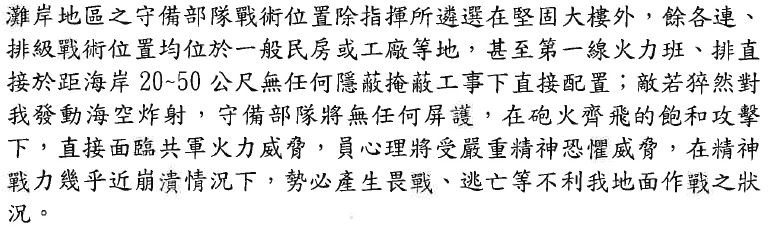 灘岸地區之守備部隊戰術位置除指揮所遴選在堅固大樓外，餘各連、
排級戰術位置均位於一般民房或工廠等地，甚至第一線火力班、排直
接於距海岸 20~50 公尺無任何隱蔽掩蔽工事下直接配置；敵若猝然對
我發動海空炸射，守備部隊將無任何屏護，在砲火齊飛的飽和攻擊
下，直接面臨共軍火力威脅，員心理將受嚴重精神恐懼威脅，在精神
戰力幾乎近崩潰情況下，勢必產生畏戰、逃亡等不利我地面作戰之狀
況。